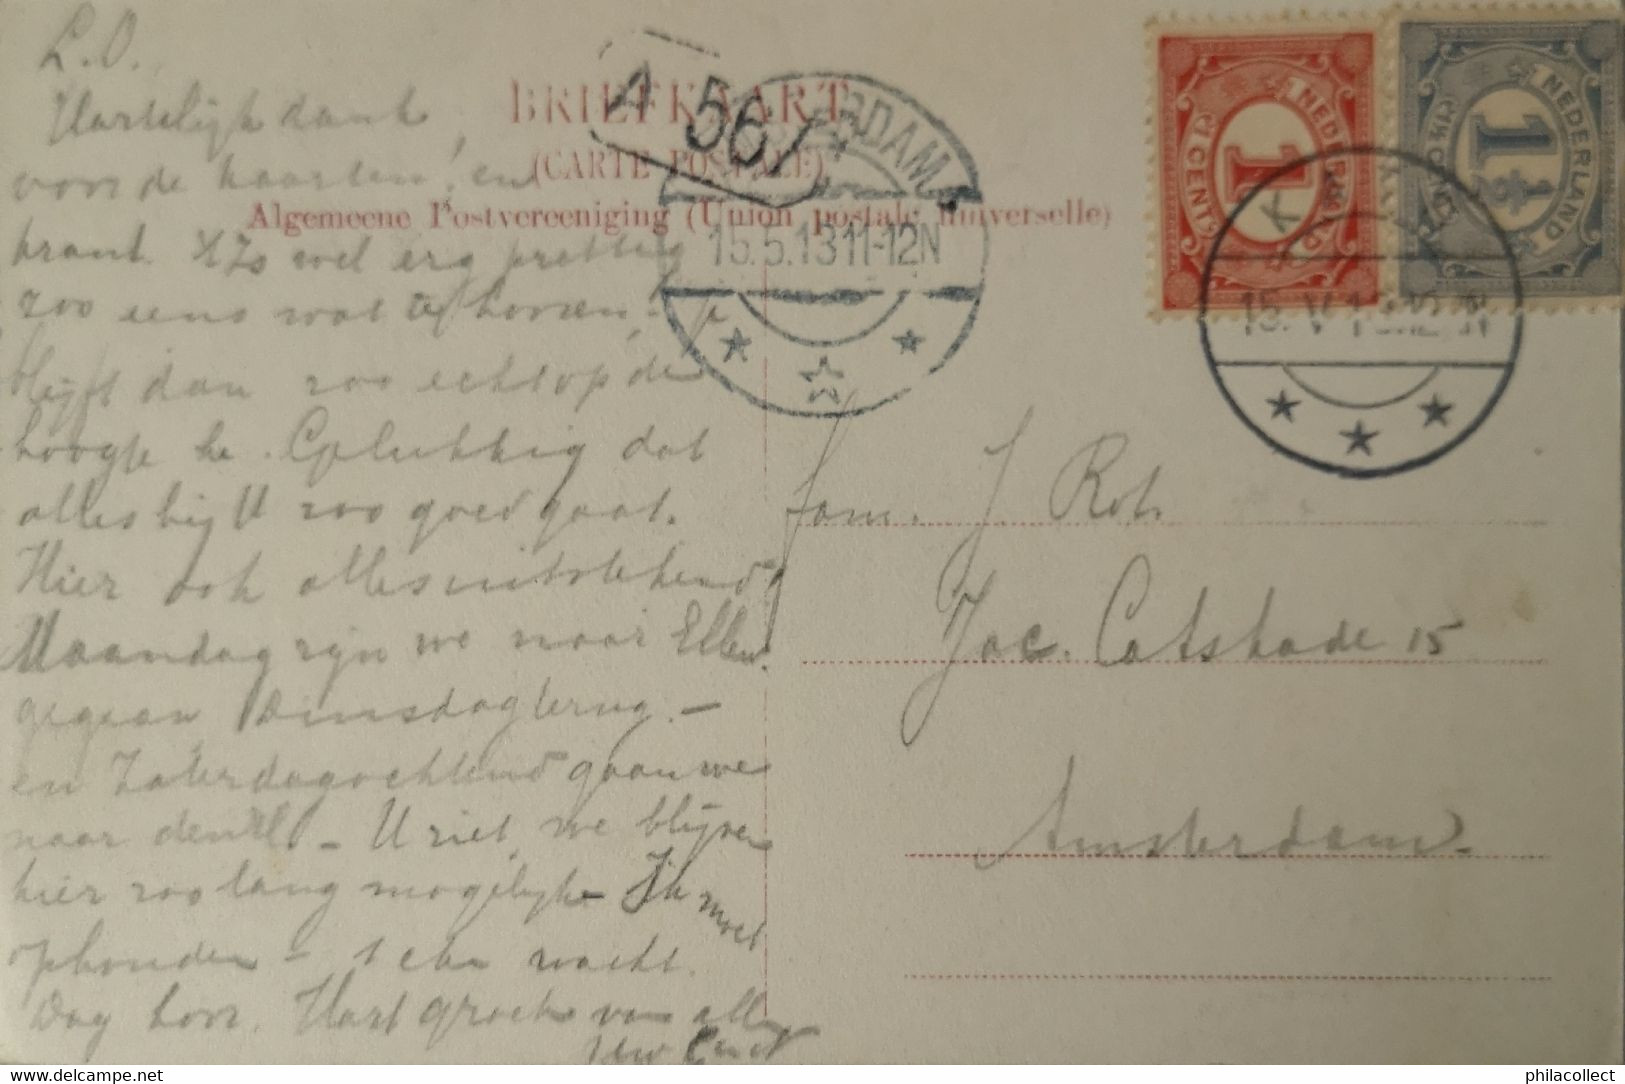 L.O.
Hartelijk dank
voor de kaarten! en
krant. 't Is wel erg prettig
zoo eens wat te hooren! Je
blijft dan zoo echt op de
hoogte he. Gelukkig dat
alles bij U zoo goed gaat.
Hier ook alles uitstekend!
Maandag zijn we naar Ellen
gegaan Dinsdag terug. –
en Zaterdagochtend gaan we
naar den – U ziet, we blijven
hier zoo lang mogelijk – Ik moet
ophouden – wacht.
Dag hoor. Hart groeten van allen
Uw
BRIEFKAART
(CARTE POSTALE)
Algemeene Postvereeniging (Union postale universelle)
A 567
AMSTERDAM
15.5.13 11-12N
NEDERLAND
1
CENT
NEDERLAND
1½
CENT
15.V.13
Fam. J. Rot.
Jac. Catskade 15
Amsterdam.
www.delcampe.net
philacollect